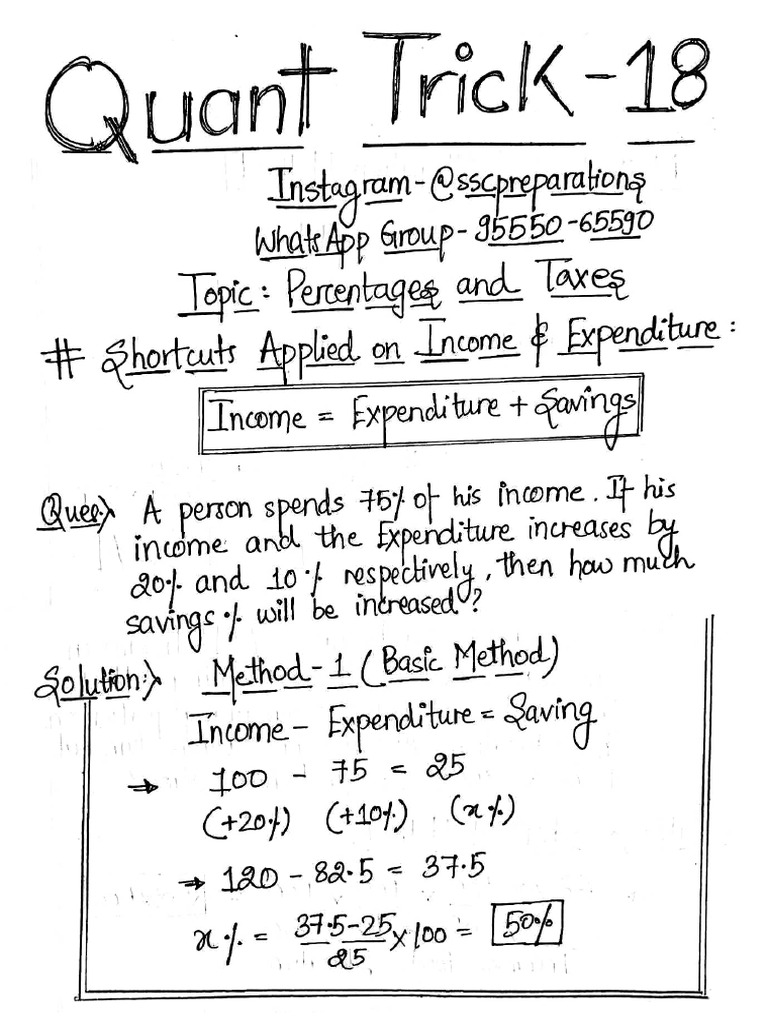 Quant Trick-18
Instagram-@sscpreparations
WhatsApp Group-95550-65590
Topic: Percentages and Taxes
# Shortcuts Applied on Income & Expenditure:
Income = Expenditure + Savings
Ques:⟩ A person spends 75% of his income. If his
income and the Expenditure increases by
20% and 10% respectively, then how much
savings % will be increased?
Solution:⟩ Method-1 (Basic Method)
Income - Expenditure = Saving
→ 100 - 75 = 25
(+20%) (+10%) (x%)
→ 120 - 82.5 = 37.5
x% = 37.5-25/25 × 100 = 50%